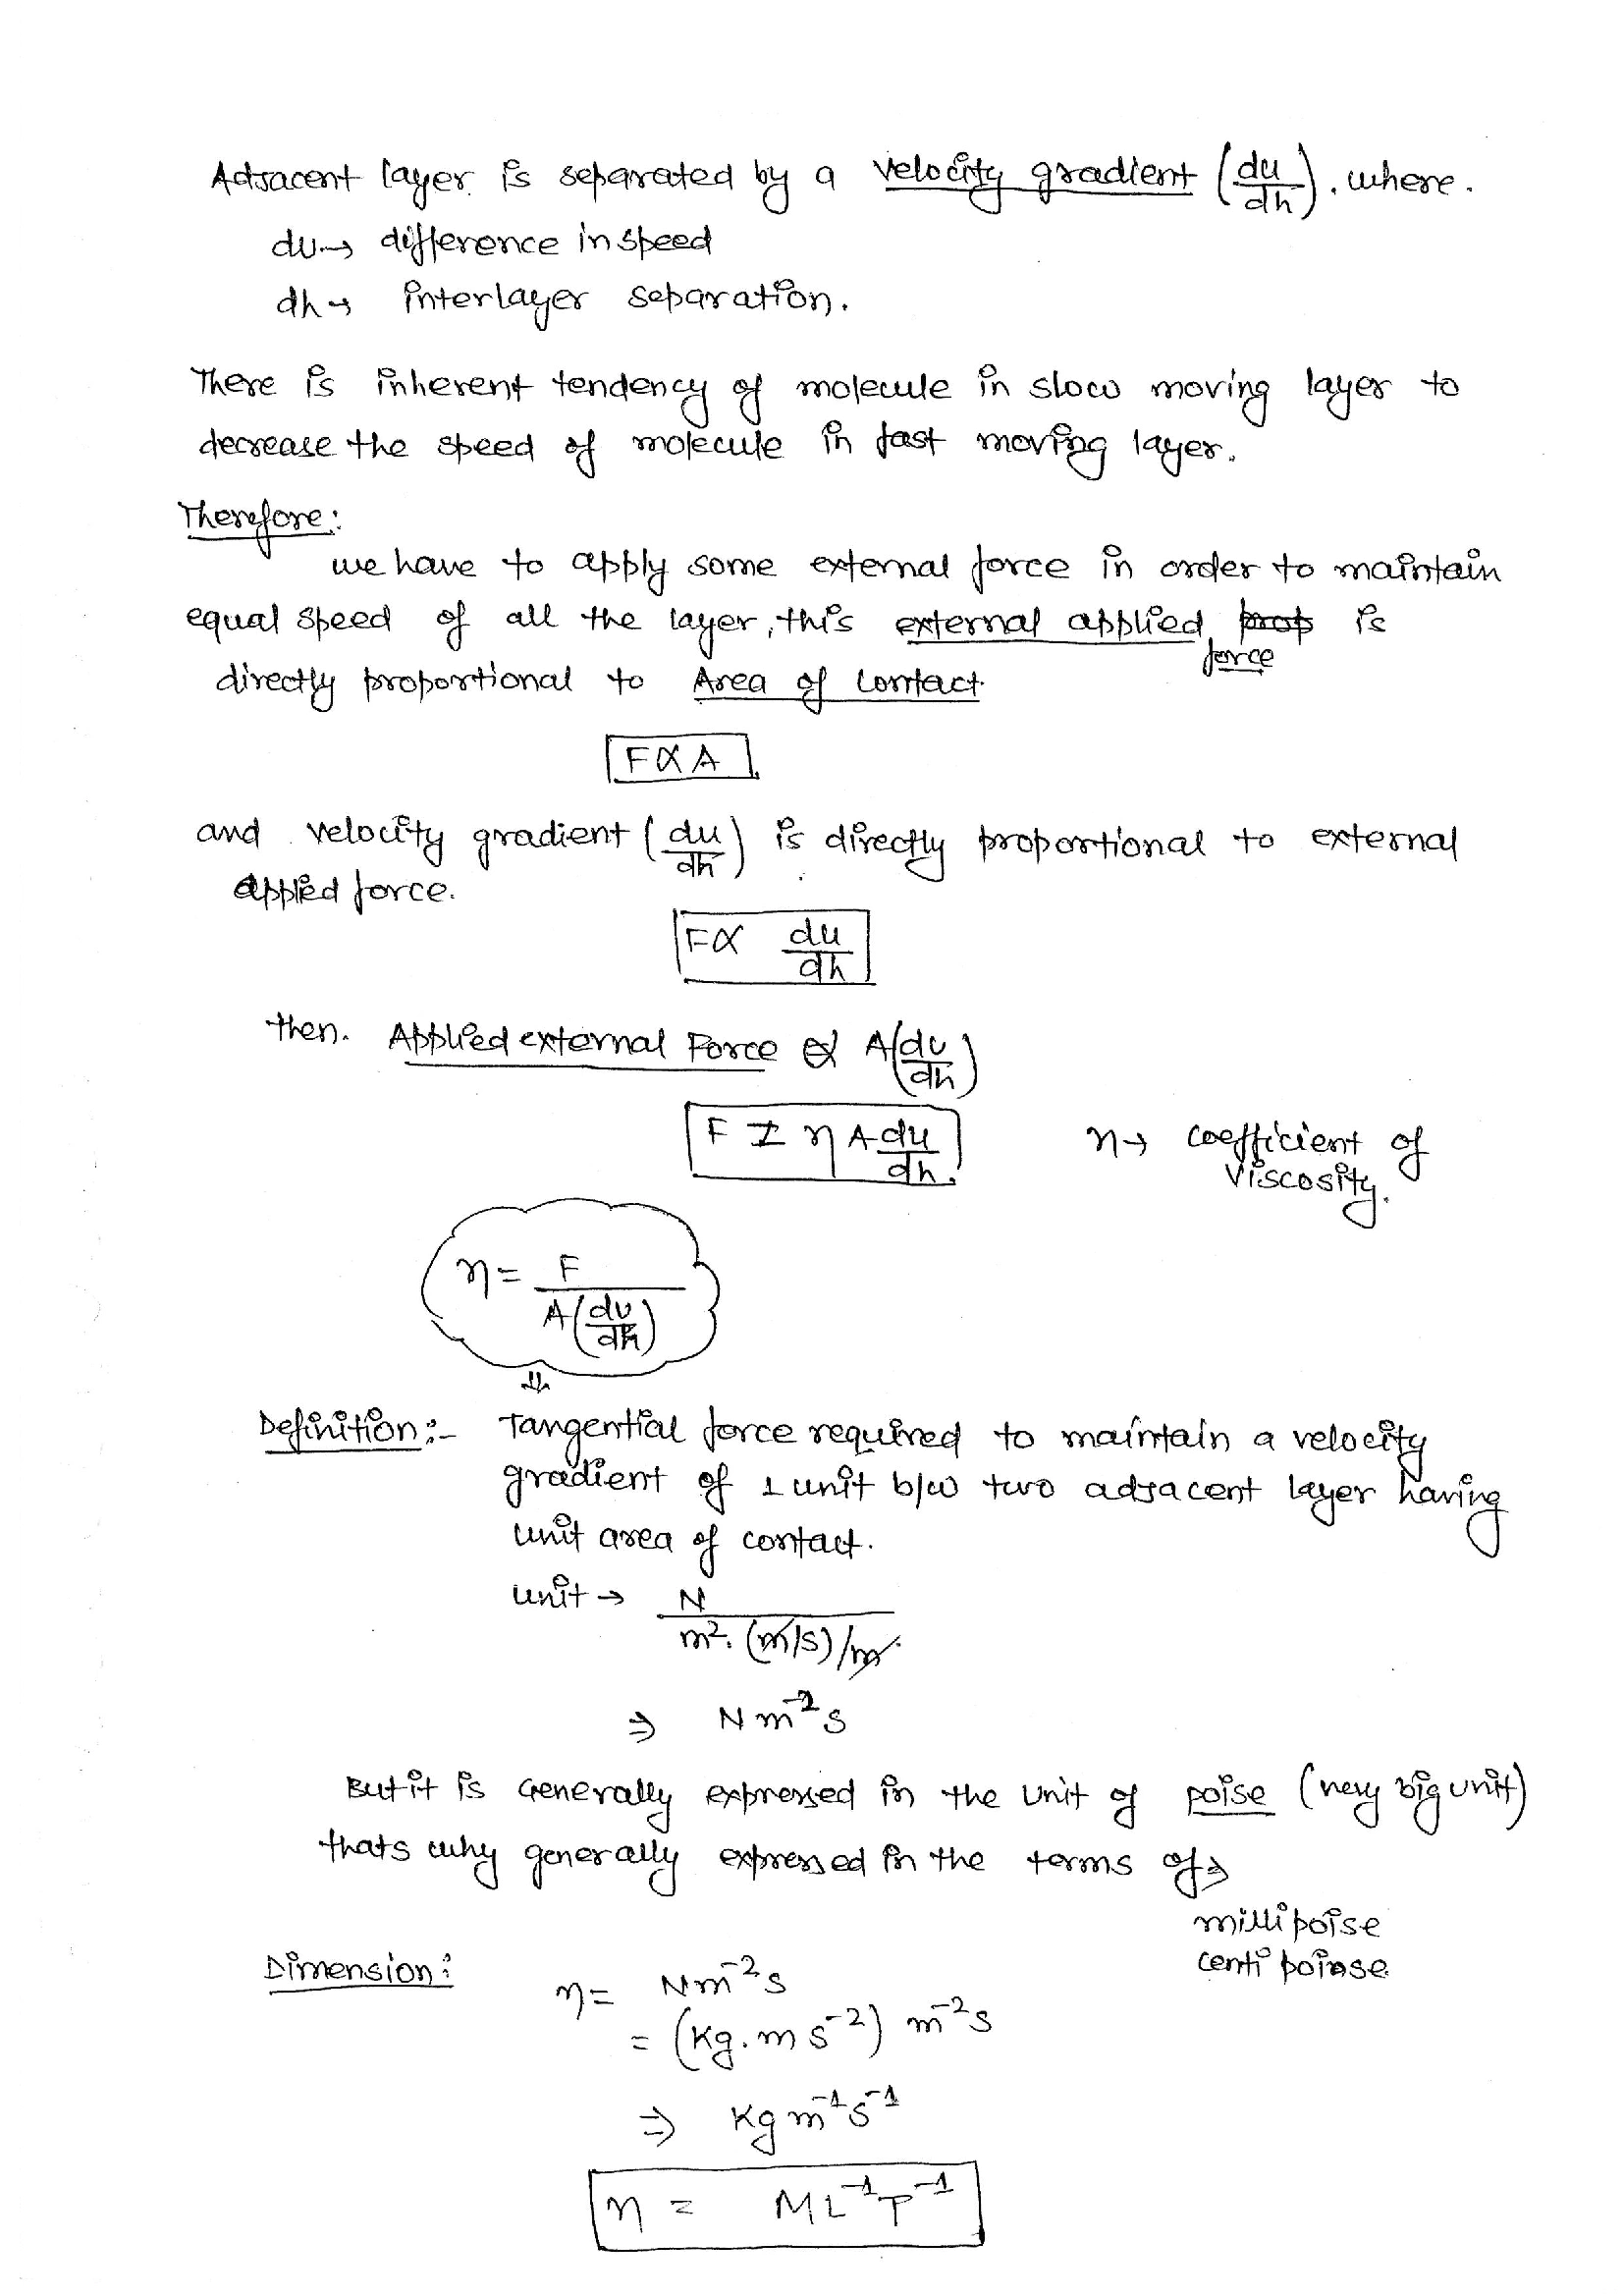 Adjacent layer is separated by a velocity gradient (du/dh), where.
du→ difference in speed
dh→ interlayer separation.
There is inherent tendency of molecule in slow moving layer to
decrease the speed of molecule in fast moving layer.
Therefore:
we have to apply some external force in order to maintain
equal speed of all the layer, this external applied force is
directly proportional to Area of contact.
F∝A
and velocity gradient (du/dh) is directly proportional to external
applied force.
F∝ du/dh
then. Applied external Force ∝ A(du/dh)
F = η A du/dh.
η→ coefficient of
viscosity.
η= F/A(du/dh)
⇓
Definition:- Tangential force required to maintain a velocity
gradient of 1 unit b/w two adjacent layer having
unit area of contact.
unit → N/m². (m/s)/m
⇒ Nm⁻²s
But it is Generally expressed in the unit of poise (very big unit)
thats why generally expressed in the terms of→
millipoise
centi poise
Dimension:
η= Nm⁻²s
= (Kg.m s⁻²) m⁻²s
⇒ Kg m⁻¹s⁻¹
η = ML⁻¹T⁻¹